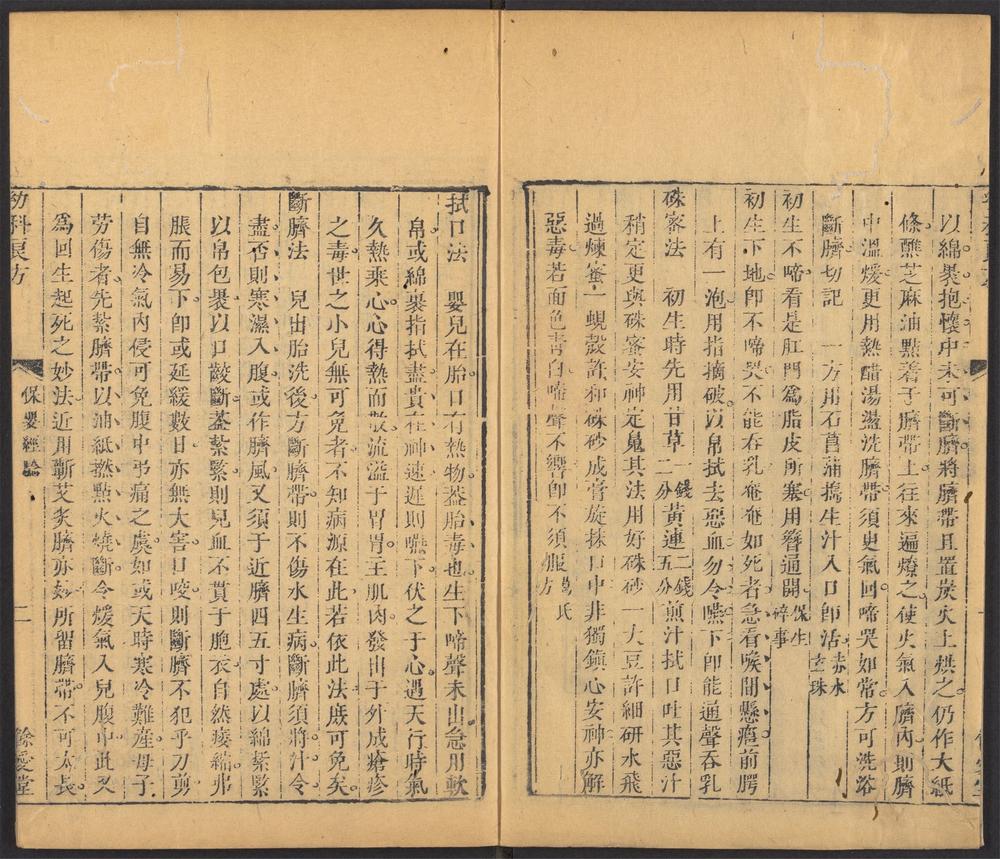 以綿裹抱懷中未可斷臍將臍帶且置炭火上烘之仍作大紙
條蘸芝麻油點着于臍帶上往來遍燎之使火氣入臍內則臍
中溫煖更用熱醋湯盪洗臍帶須臾氣回啼哭如常方可洗浴
斷臍切記　一方用石菖蒲擣生汁入口即活赤水玄珠
初生不啼看是肛門爲脂皮所塞用簪通開保生碎事
初生下地即不啼哭不能吞乳奄奄如死者急看喉間懸癰前腭
上有一泡用指摘破以帛拭去惡血勿令嚥下即能通聲吞乳
硃蜜法　初生時先用甘草一錢二分黃連二錢五分煎汁拭口吐其惡汁
稍定更與硃蜜安神定魄其法用好硃砂一大豆許細研水飛
過煉蜜一蜆殼許和硃砂成膏旋抹口中非獨鎮心安神亦解
惡毒若面色青白啼聲不響即不須服葛氏方
拭口法　嬰兒在胎口有熱物葢胎毒也生下啼聲未出急用軟
帛或綿裹指拭盡貴在神速遲則嚥下伏之于心遇天行時氣
久熱乘心心得熱而散流溢于胃胃主肌肉發出于外成瘡疹
之毒世之小兒無可免者不知病源在此若依此法庶可免矣
斷臍法　兒出胎洗後方斷臍帶則不傷水生病斷臍須將汁令
盡否則寒濕入腹或作臍風又須于近臍四五寸處以綿紮緊
以帛包裹以口齩斷葢紮緊則兒血不貫于胞衣自然痿綿弗
脹而易下即或延緩數日亦無大害口咬則斷臍不犯乎刀剪
自無冷氣內侵可免腹中弔痛之虞如或天時寒冷難產母子
勞傷者先紮臍帶以油紙撚點火燒斷令煖氣入兒腹中此又
爲回生起死之妙法近用蘄艾炙臍亦妙所留臍帶不可太長
幼科良方　保嬰經驗　二　餘慶堂